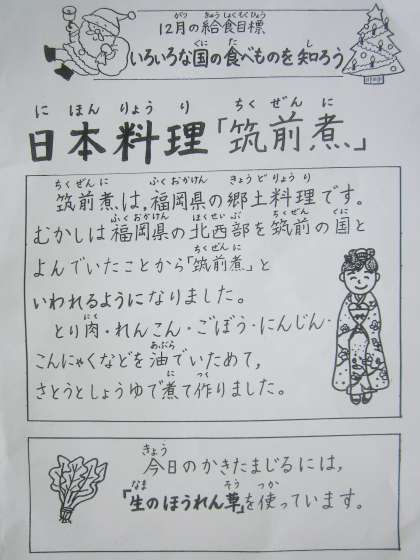 12月の給食目標
いろいろな国の食べものを知ろう
日本料理「筑前煮」
筑前煮は、福岡県の郷土料理です。
むかしは福岡県の北西部を筑前の国と
よんでいたことから「筑前煮」と
いわれるようになりました。
とり肉・れんこん・ごぼう・にんじん・
こんにゃくなどを油でいためて,
さとうとしょうゆで煮て作りました。
今日のかきたまじるには,
「生のほうれん草」を使っています。